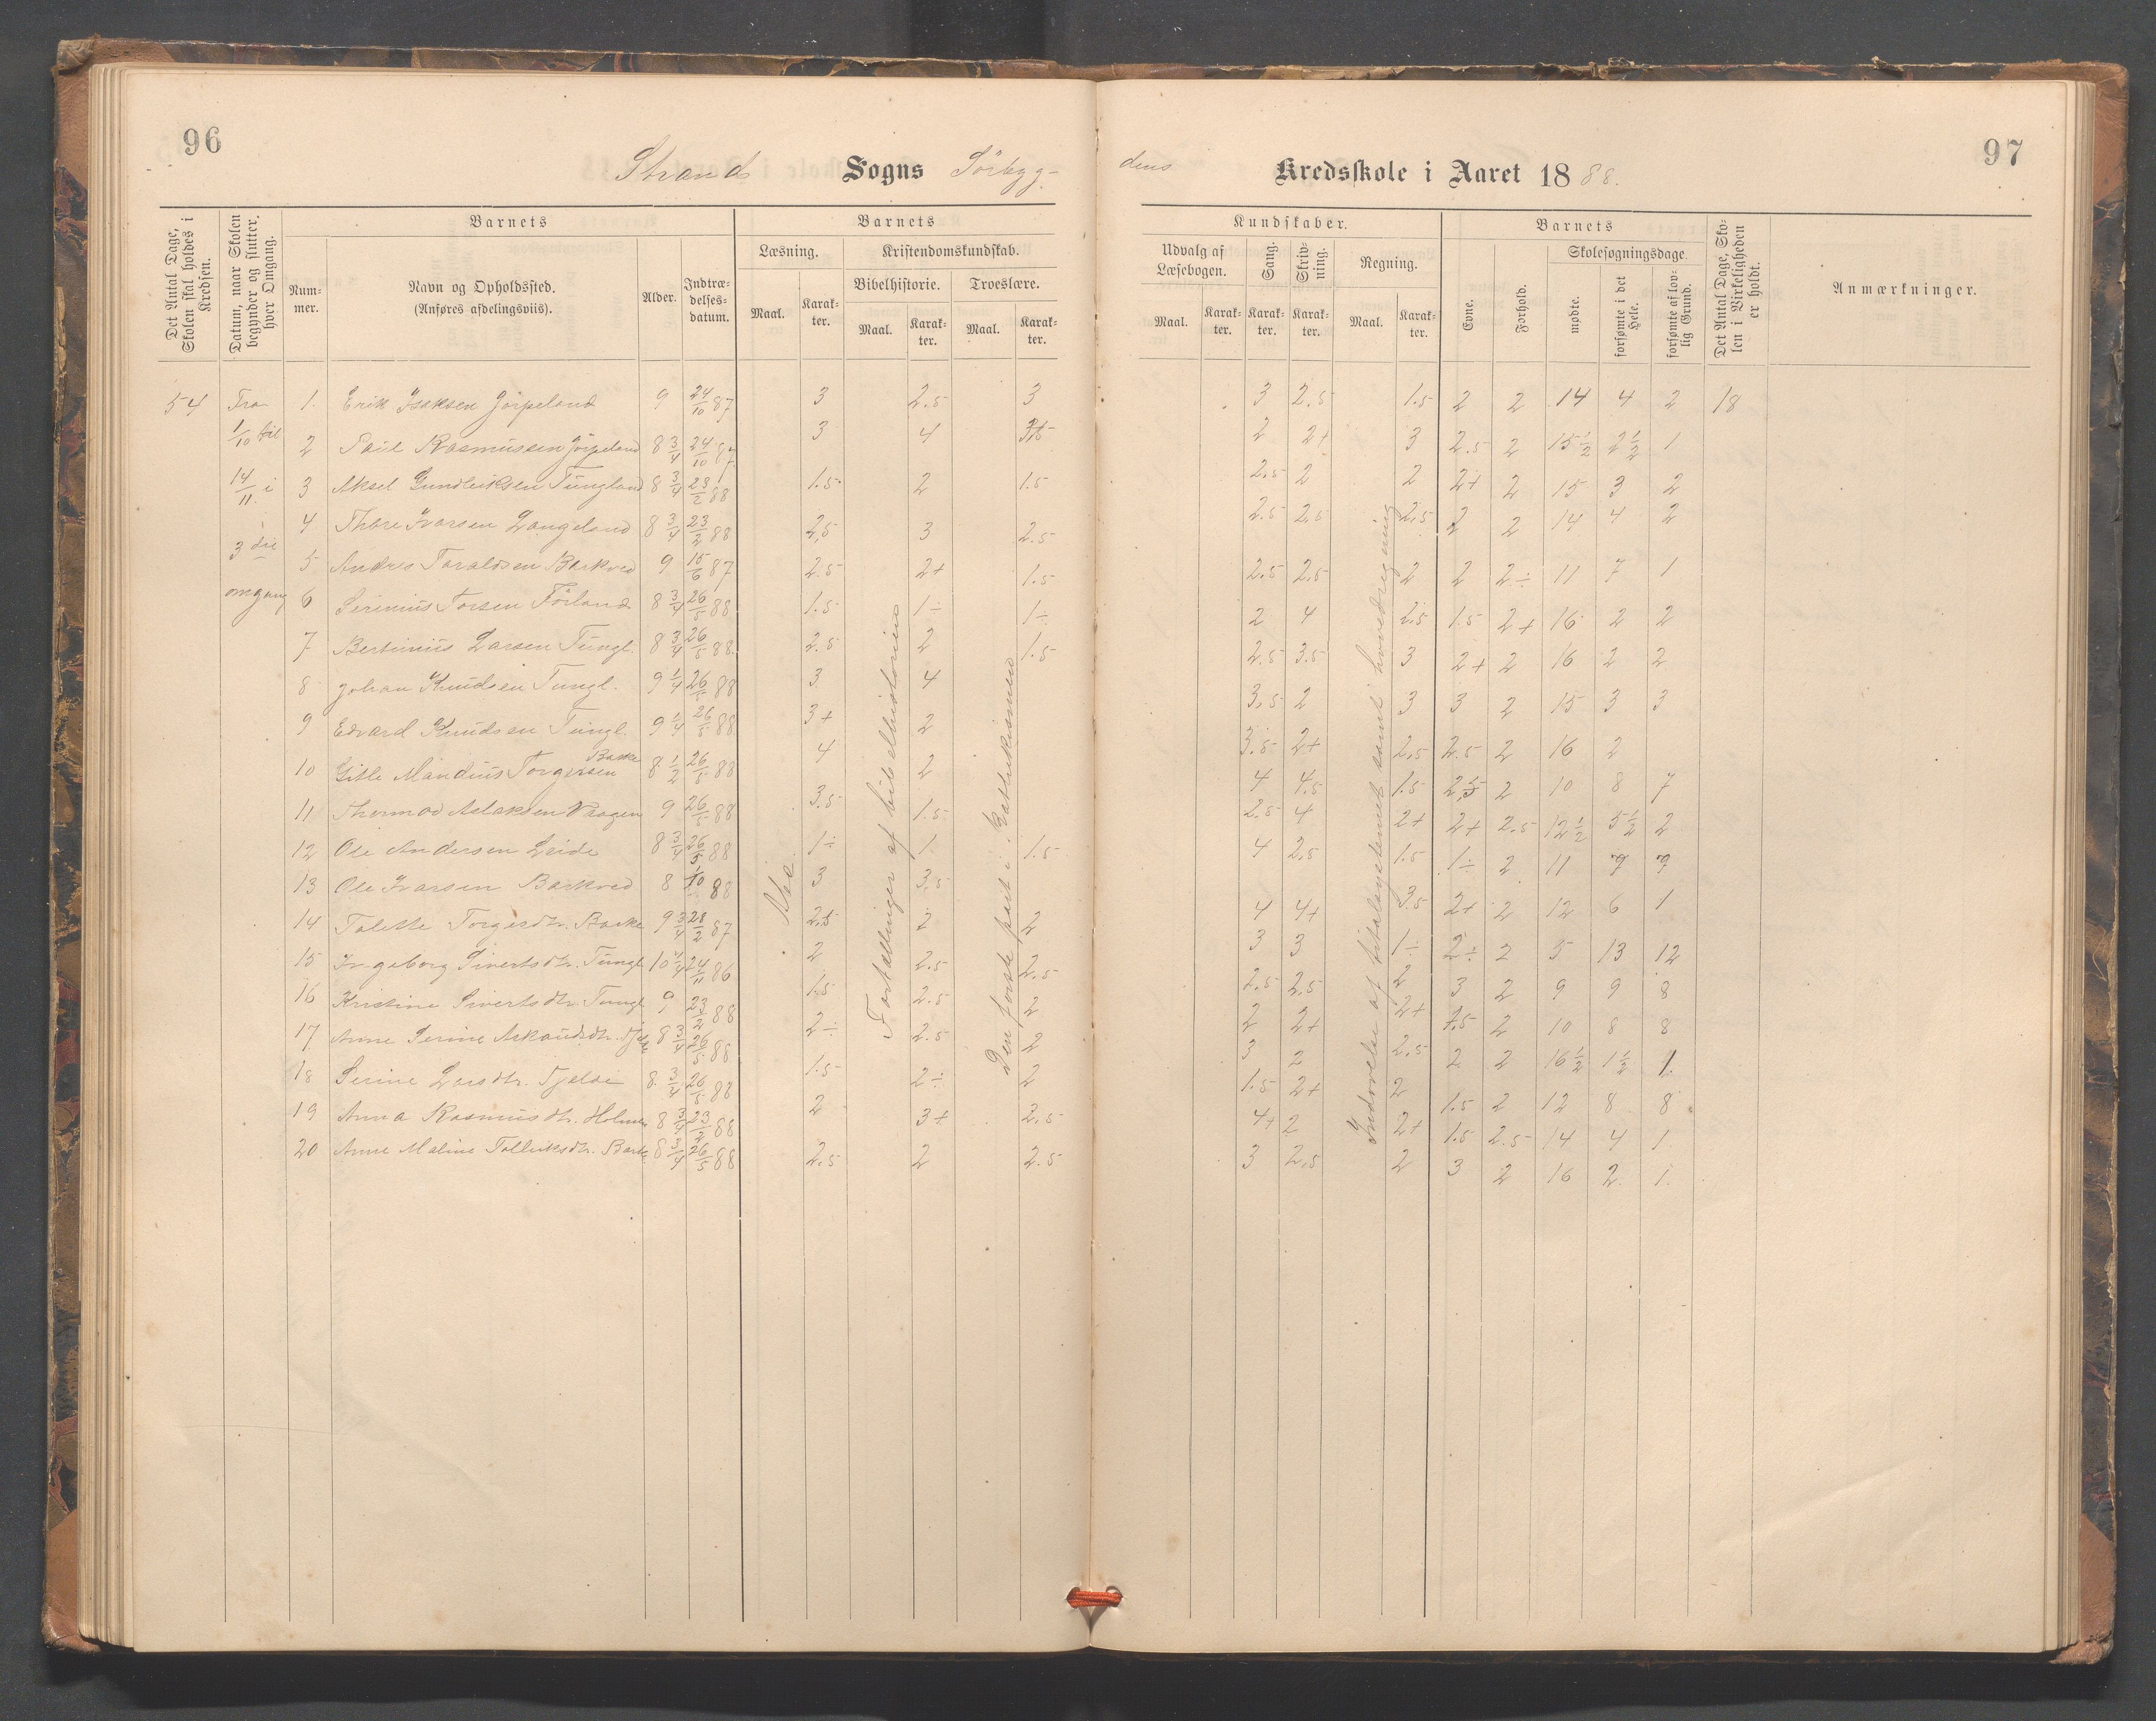 96
97
Strands Sogns Sörbyg-
dens Kredsskole i Aaret 1888.
Det Antal Dage, Skolen skal holdes i Kredsen.
Datum, naar Skolen begynder og slutter. hver Omgang.
Barnets
Num-
mer.
Navn og Opholdssted.
(Anføres afdelingsviis).
Alder.
Indtræ-
delses-
datum.
Barnets
Læsning.
Kristendomskundskab.
Bibelhistorie.
Troeslære.
Maal.
Karak-
ter.
Maal.
Karak-
ter.
Maal.
Karak-
ter.
Kundskaber.
Udvalg af
Læsebogen.
Sang.
Skriv-
ning.
Regning.
Maal.
Karak-
ter.
Karak-
ter.
Karak-
ter.
Maal.
Karak-
ter.
Barnets
Evne.
Forhold.
Skolesøgningsdage.
mødte.
forsømte i det Hele.
forsømte af lov-
lig Grund.
Det Antal Dage, Sko-
len i Virkeligheden
er holdt.
Anmærkninger.
54 Fra 1/10 til 14/11 i 3die omgang
1. Erik Isaksen Jörpeland 9 24/10 87 3 2.5 3 3 2.5 1.5 2 2 14 4 2 18
2 Paul Rasmussen Jörpeland 8 3/4 24/10 87 3 4 2 2+ 3 2.5 2 15 1/2 2 1/2 1
3 Aksel Gundleiksen Tungland 8 3/4 23/2 88 1.5 2 1.5 2.5 2 2 2+ 2 15 3 2
4 Thore Ivarsen Langeland 8 3/4 23/2 88 2,5 3 2.5 2.5 2.5 2.5 2 2 14 4 2
5 Andres Taraldsen Barkved 9 15/6 87 2.5 2+ 1.5 2.5 2.5 2 2 2÷ 11 7 1
6 Serinius Torsen Förland 8 3/4 26/5 88 1.5 1÷ 1÷ 2 4 2.5 1.5 2+ 16 2 2
7 Bertinius Larsen Tungl. 8 3/4 26/5 88. 2.5 2 1.5 2.5 3.5 3 2+ 2 16 2 2
8 Johan Knudsen Tungl. 9 1/4 26/5 88 3 4 3,5 2 3 3 2 15 3 3
9 Edvard Knudsen Tungl. 9 1/4 26/5 88 3+ 2 3.5 2+ 2,5 2.5 2 16 2
10 Gitle Mandius Torgersen Barke 8 1/2 26/5 88 4 2 4 4.5 1.5 2 10 8 7
11 Thormod Aslaksen Vaagen 9 26/5 88 3.5 1.5 2.5 4 2+ 2+ 2.5 12 1/2 5 1/2 2
12 Ole Andersen Leide 8 3/4 26/5 88 1÷ 1 1.5 4 2.5 1.5 1÷ 2 11 7 7
13 Ole Ivarsen Barkved 8 1/10 88 3 3.5 4 4+ 3.5 2+ 2 12 6 1
14 Talette Torgersdtr. Barke 9 3/4 28/2 87 2.5 2 2 3 3 1÷ 2÷ 2 5 13 12
15 Ingeborg Sivertsdtr. Tungl 10 24/11 86 2 2.5 2.5 2.5 2.5 2 3 2 9 9 8
16 Kristine Sivertsdtr. Tungl 9 23/2 88 1.5 2.5 2 2 2+ 2+ 2 10 8 8
17. Anne Serine Askoudsdtr. 8 3/4 26/5 88 2÷ 2.5 2 3 2 2.5 2 2 16 1/2 1 1/2 1.
18 Serine Larsdtr. Fjelde 8. 3/4 26/5 88 1.5 2÷ 2 1.5 2+ 2 1.5 2 12 8 8
19 Anna Rasmusdtr. Holmen 8 3/4 23/2 88 2 3+ 2.5 4+ 2 2+ 1.5 2.5 14 4 1
20 Anne Maline Tolleiksdtr. Bark. 8 3/4 26/5 88 2.5 2 2.5 3 2.5 2 3 2 16 2. 1.
Abc
Fortællinger af bibelhistorien
Den första part i Katekismen
Indövelse af titalsystemet samt hovedregning